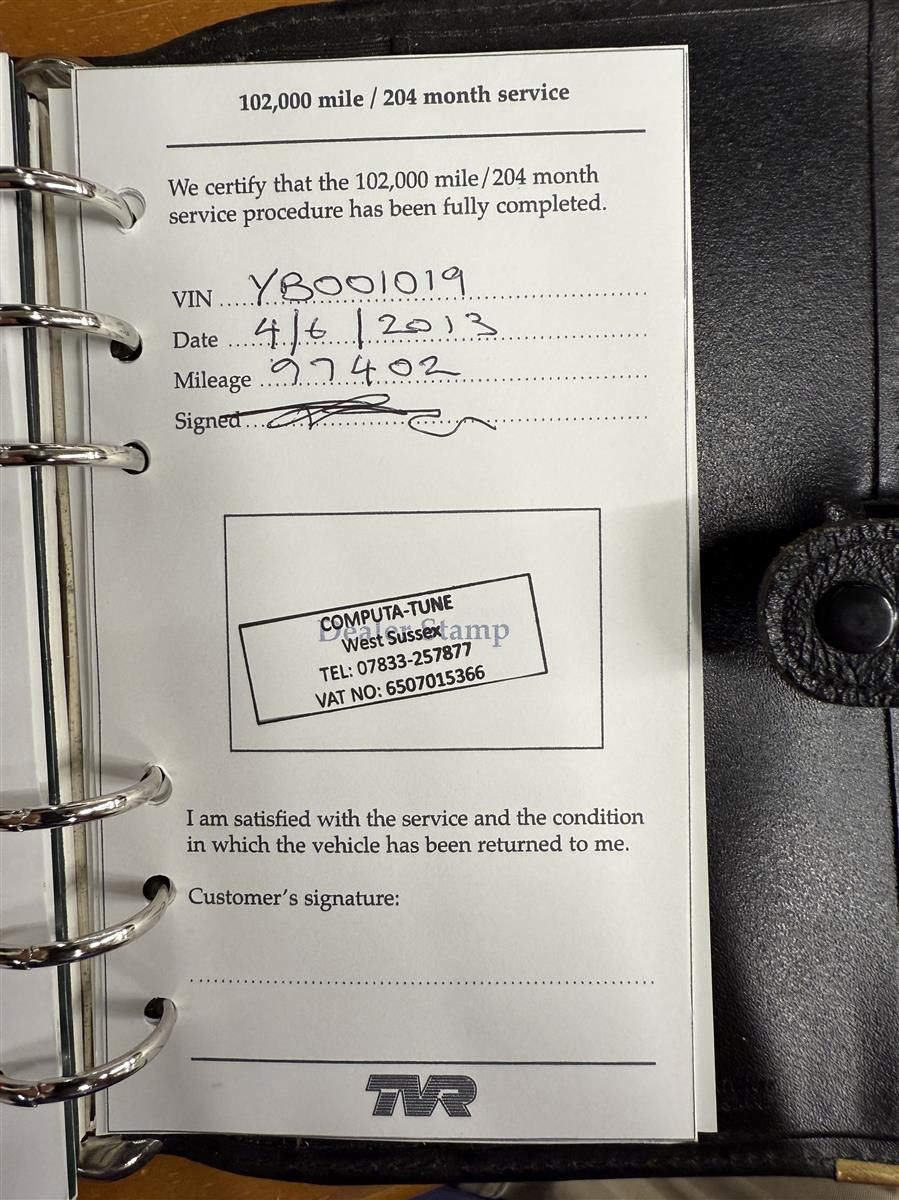 102,000 mile / 204 month service
We certify that the 102,000 mile/204 month
service procedure has been fully completed.
VIN YB001019
Date 4/6/2013
Mileage 97402
Signed
Dealer Stamp
COMPUTA-TUNE
West Sussex
TEL: 07833-257877
VAT NO: 6507015366
I am satisfied with the service and the condition
in which the vehicle has been returned to me.
Customer's signature:
TVR